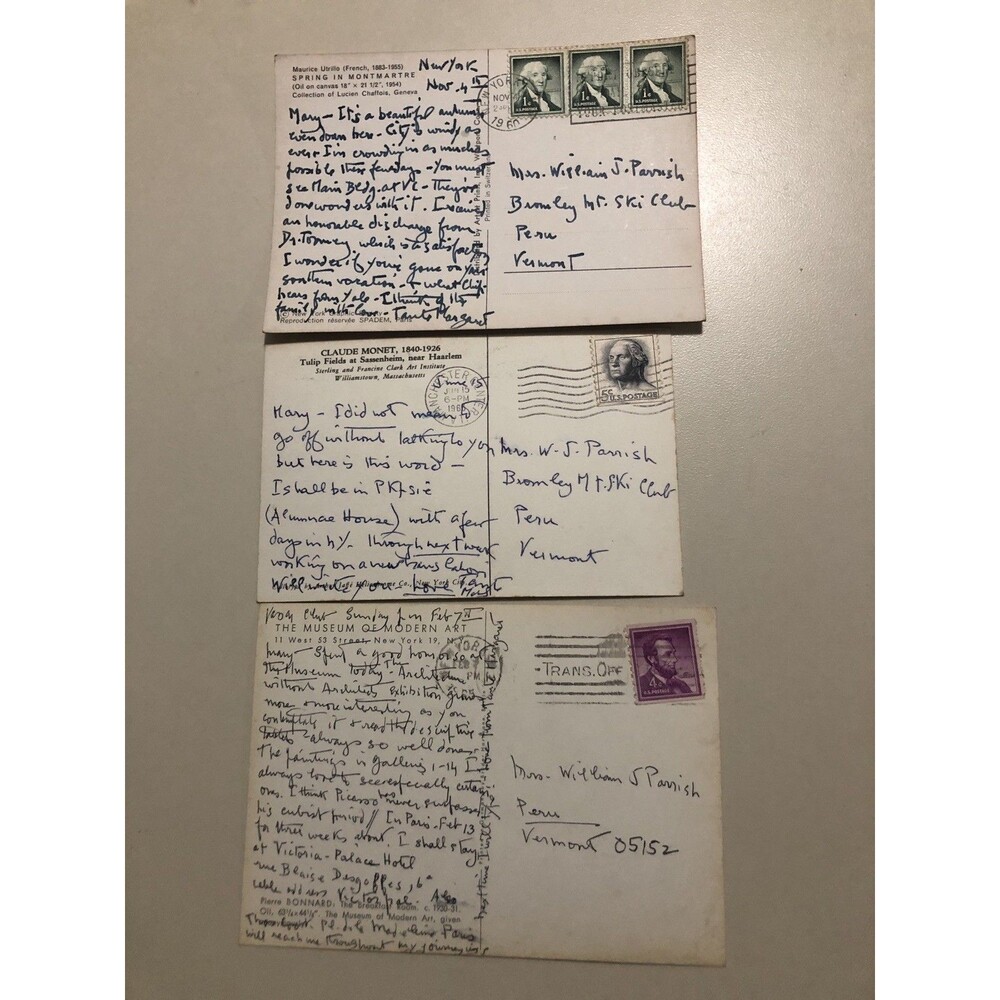 Maurice Utrillo (French, 1883-1955)
SPRING IN MONTMARTRE
(Oil on canvas 18" x 21 1/2", 1954)
Collection of Lucien Chaffois, Geneva
New York
Nov. 4th
Mary - It's a beautiful autumn
even down here - City is windy as
ever. I'm crowding in as much as
possible these few days - You must
see Main Bldg. at VC - They've
done wonders with it. I received
an honorable discharge from
Dr. which is a satisfactory
I wonder if you've gone on your
southern vacation - & what Chip
hears from Yale - I think of the
family with love - Tante Margaret
Reproduction réservée SPADEM, Paris
Printed in Switzerland
NEW YORK
NOV
1960
1¢ U.S. POSTAGE
1¢ U.S. POSTAGE
1¢ U.S. POSTAGE
Mrs. William J. Parrish
Bromley Mt. Ski Club
Peru
Vermont
CLAUDE MONET, 1840-1926
Tulip Fields at Sassenheim, near Haarlem
Sterling and Francine Clark Art Institute
Williamstown, Massachusetts
June 15
MANCHESTER CENTER
JUN 15
6-PM
5¢ U.S. POSTAGE
Mary - I did not mean to
go off without talking to you
but here is this word -
I shall be in PK
(Alumnae House) with a few
days in NY. through next week
working on a new translation
Will write you - Love Tante
Mrs. W. J. Parrish
Bromley Mt. Ski Club
Peru
Vermont
Club Sunday Feb 7th
THE MUSEUM OF MODERN ART
11 West 53 Street, New York 19, N.
Mary - Spent a good hour or so at
the Museum today - The Architecture
without Architects exhibition grows
more & more interesting as you
contemplate it & read the descriptive
always so well done.
The paintings in galleries 1-14 I
always love to see especially certain
ones. I think Picasso has never surpassed
his cubist period // In Paris - Feb 13
for three weeks about. I shall stay
at Victoria-Palace Hotel
rue Blaise Desgoffes, 6e
cable address Victorpal. Also
Pierre BONNARD: The Breakfast Room. c. 1930-31.
Oil, 63¼ x 44⅞". The Museum of Modern Art, given
Pl. de la Madeleine Paris
will reach me throughout my journeyings
Tante Margaret
TRANS. OFF
4¢ U.S. POSTAGE
Mrs. William J Parrish
Peru
Vermont 05152